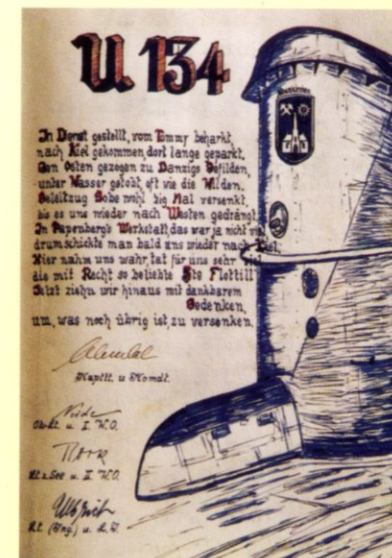 U 134
In Dienst gestellt, vom Tommy beharkt,
nach Kiel gekommen, dort lange geparkt.
Gen Osten gezogen zu Danzigs Gefilden,
unter Wasser getobt, oft wie die Wilden.
Geleitzug Sobe wohl big Mal versenkt,
bis es uns wieder nach Westen gedrängt.
In Papenberg's Werkstatt, das war ja nicht viel
drum schickte man bald uns wieder nach Kiel.
Hier nahm uns wahr, tat für uns sehr viel
die mit Recht so beliebte 5te Flottill
Jetzt ziehn wir hinaus mit dankbarem
Gedenken,
um, was noch übrig ist, zu versenken.
Kaptlt. u Komdt.
Ob.lt. u I. W.O.
Lt. z. See u II W.O.
Lt. (Ing.) u. L.I.